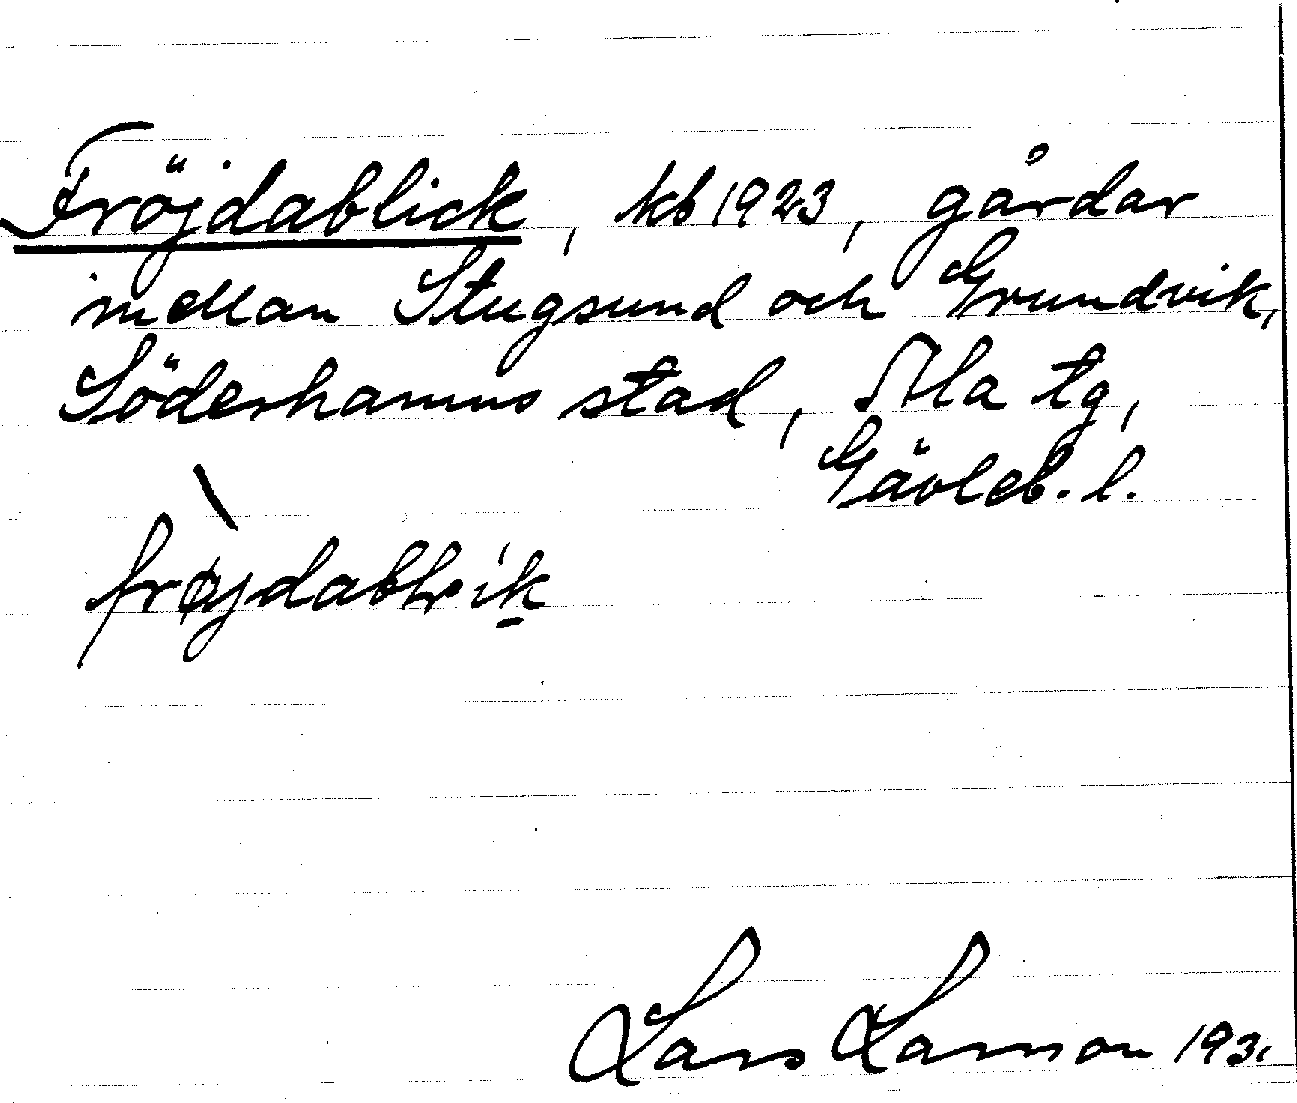 Fröjdablick, kb 1923, gårdar
mellan Stugsund och Grundvik,
Söderhamns stad, Ala tg,
Gävleb. l.
frøjdablik
Lars Larsson 193